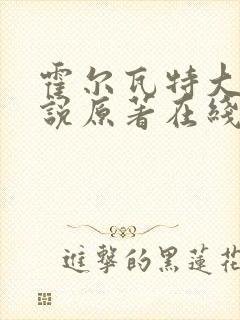 霍尔瓦特大
說原著在綫
進擊的黑蓮花